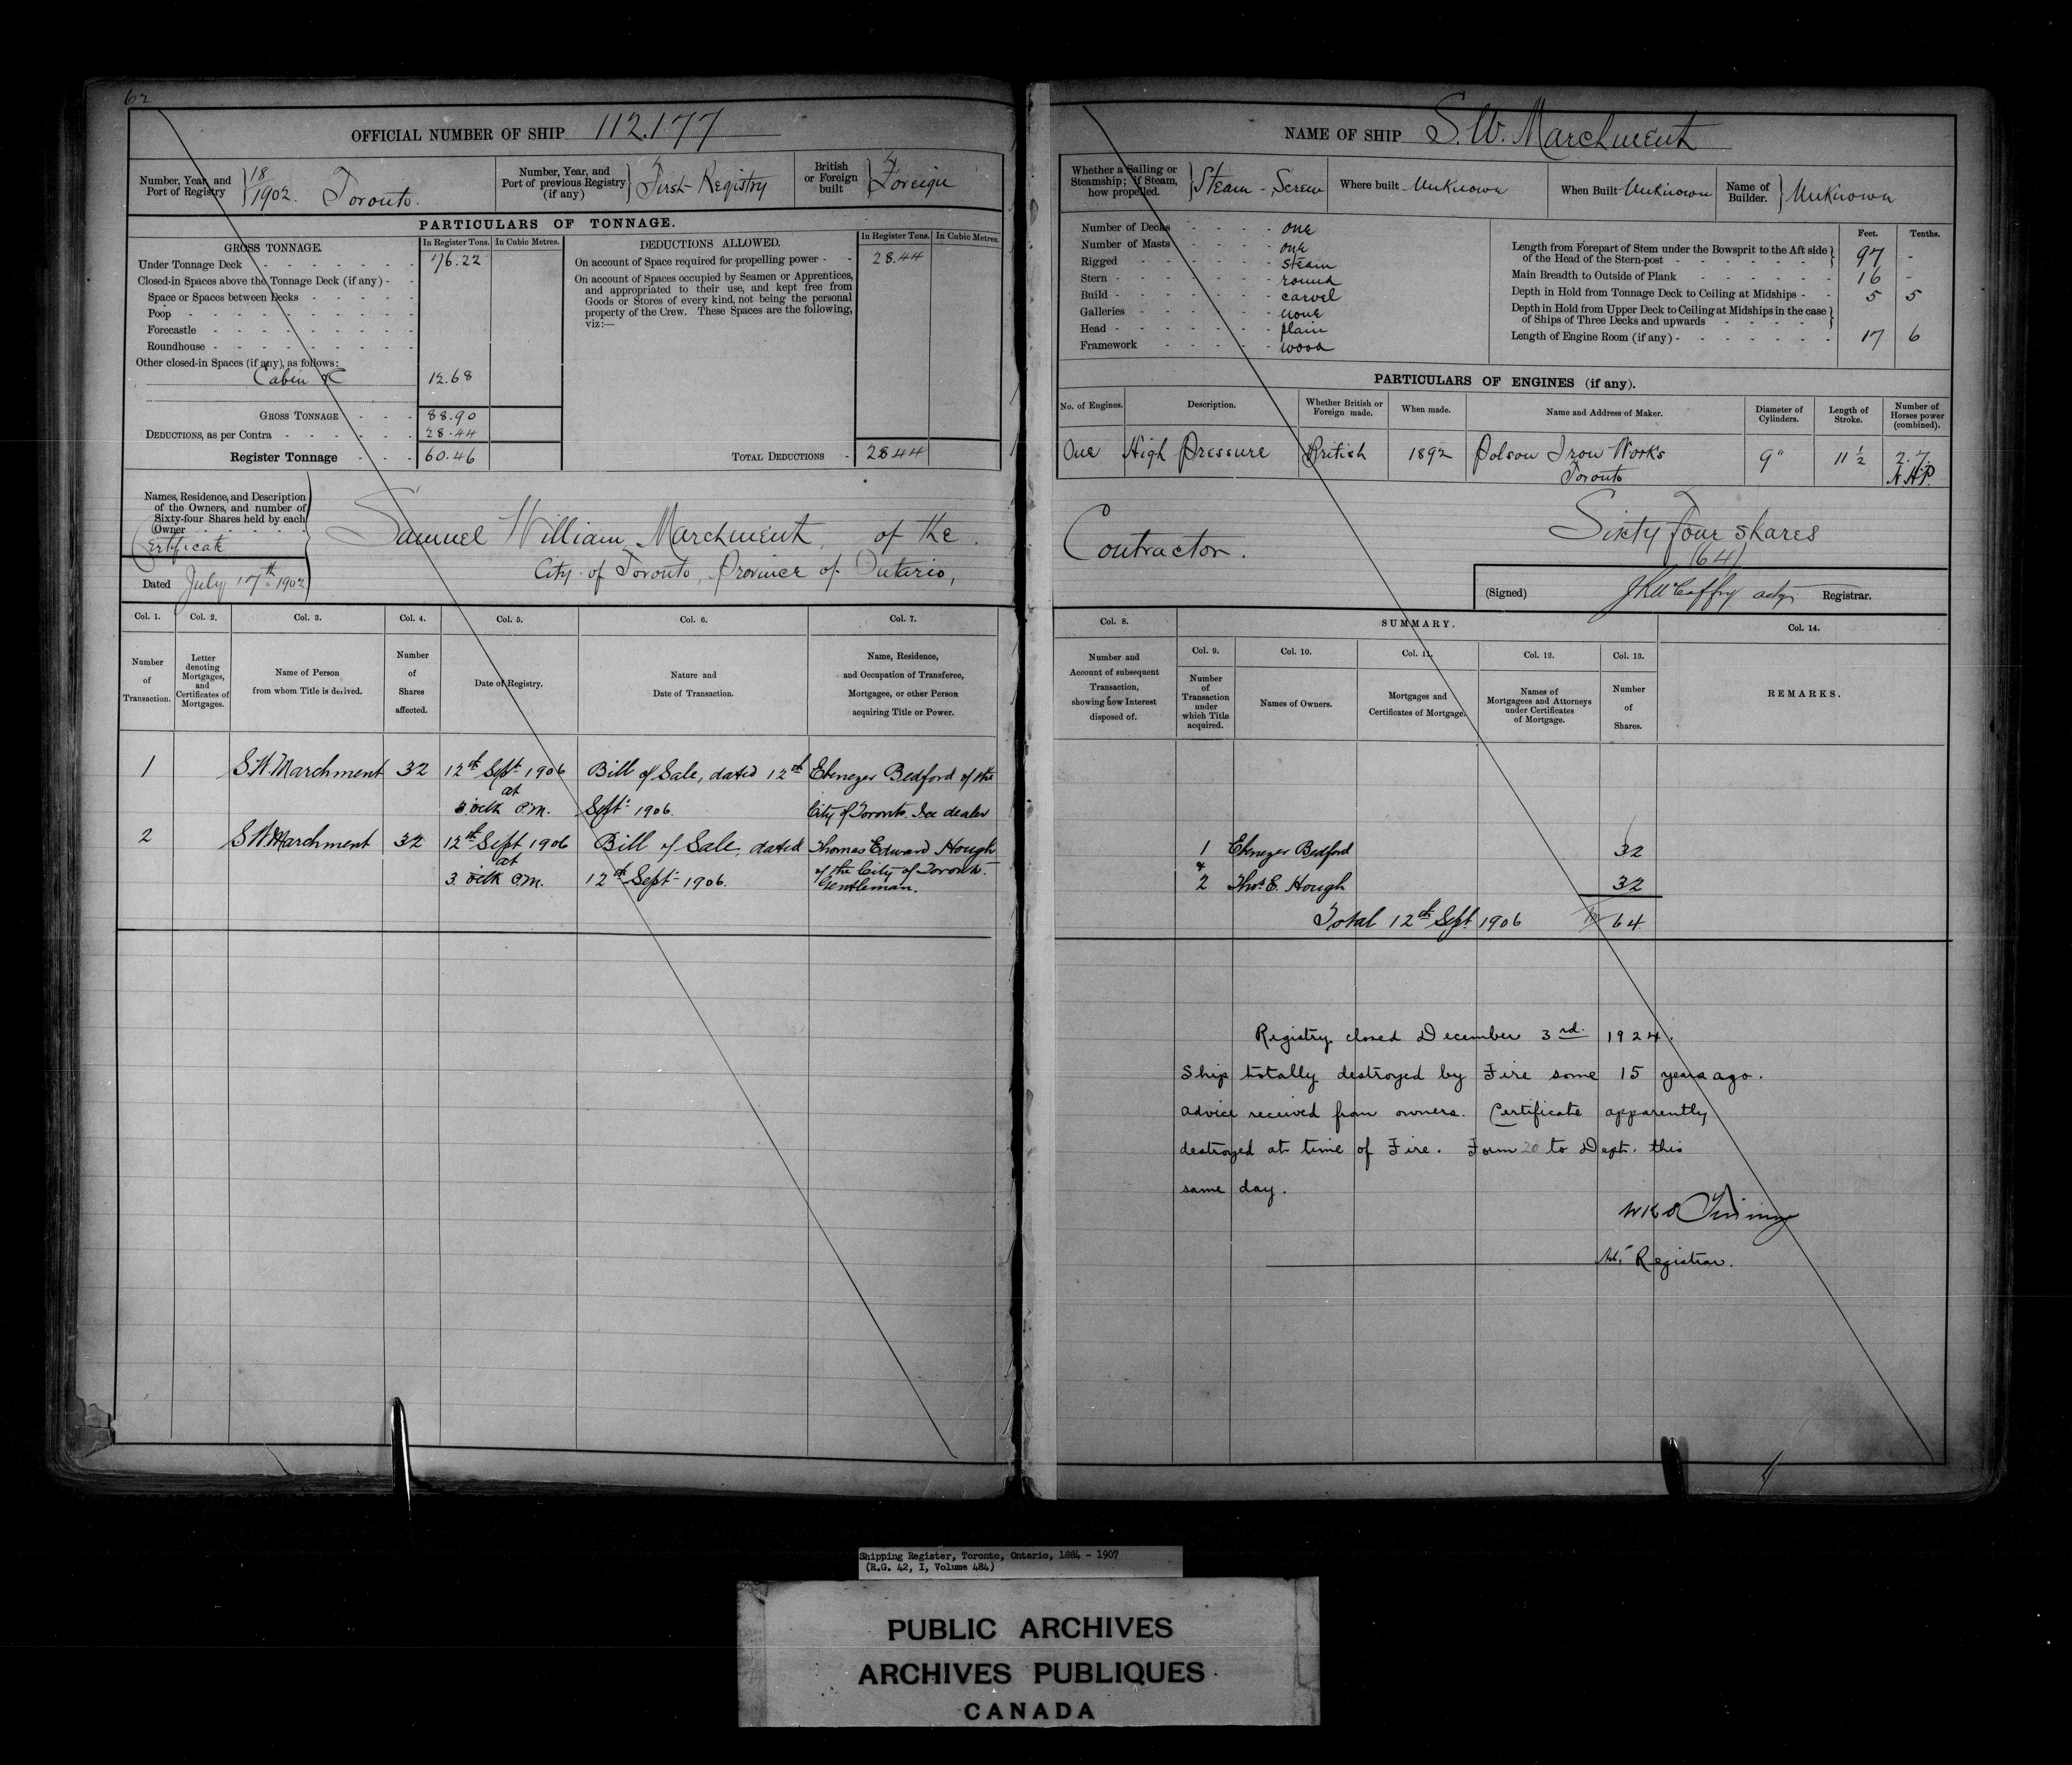 62
OFFICIAL NUMBER OF SHIP 112.177
Number, Year, and Port of Registry } 18/1902. Toronto.
Number, Year, and Port of previous Registry (if any) } First Registry
British or Foreign built } Foreign
PARTICULARS OF TONNAGE.
GROSS TONNAGE. In Register Tons. In Cubic Metres.
Under Tonnage Deck 76.22
Closed-in Spaces above the Tonnage Deck (if any)
Space or Spaces between Decks
Poop
Forecastle
Roundhouse
Other closed-in Spaces (if any), as follows:
Cabin &c 12.68
GROSS TONNAGE 88.90
DEDUCTIONS, as per Contra 28.44
Register Tonnage 60.46
DEDUCTIONS ALLOWED. In Register Tons. In Cubic Metres.
On account of Space required for propelling power 28.44
On account of Spaces occupied by Seamen or Apprentices,
and appropriated to their use, and kept free from
Goods or Stores of every kind, not being the personal
property of the Crew. These Spaces are the following,
viz:—
TOTAL DEDUCTIONS 28.44
Names, Residence, and Description
of the Owners, and number of
Sixty-four Shares held by each
Owner
Certificate
Dated July 17th 1902
Samuel William Marchment, of the
City of Toronto, Province of Ontario,
Col. 1. Col. 2. Col. 3. Col. 4. Col. 5. Col. 6. Col. 7.
Number of Transaction.
Letter denoting Mortgages, and Certificates of Mortgages.
Name of Person from whom Title is derived.
Number of Shares affected.
Date of Registry.
Nature and Date of Transaction.
Name, Residence, and Occupation of Transferee, Mortgagee, or other Person acquiring Title or Power.
1 S.W. Marchment 32 12th Sept 1906 Bill of Sale, dated 12th Ebenezer Bedford of the
at
3 oclk P.M. Sept. 1906. City of Toronto. Ice dealer
2 S W Marchment 32 12th Sept 1906 Bill of Sale, dated Thomas Edward Hough
at of the City of Toronto.
3 oclk P.M. 12th Sept. 1906. Gentleman.
NAME OF SHIP S.W. Marchment
Whether a Sailing or Steamship; if Steam, how propelled. } Steam - Screw
Where built Unknown
When Built Unknown
Name of Builder. } Unknown
Number of Decks one
Number of Masts one
Rigged steam
Stern round
Build carvel
Galleries none
Head plain
Framework wood
Feet. Tenths.
Length from Forepart of Stem under the Bowsprit to the Aft side
of the Head of the Stern-post 97 -
Main Breadth to Outside of Plank 16 -
Depth in Hold from Tonnage Deck to Ceiling at Midships 5 5
Depth in Hold from Upper Deck to Ceiling at Midships in the case
of Ships of Three Decks and upwards
Length of Engine Room (if any) 17 6
PARTICULARS OF ENGINES (if any).
No. of Engines. Description. Whether British or Foreign made. When made. Name and Address of Maker. Diameter of Cylinders. Length of Stroke. Number of Horses power (combined).
One High Pressure British 1892 Polson Iron Works 9" 11 1/2 2.7
Toronto N.H.P.
Contractor.
Sixty four shares
(64)
(Signed) acty Registrar.
Col. 8. SUMMARY. Col. 14.
Col. 9. Col. 10. Col. 11. Col. 12. Col. 13.
Number and Account of subsequent Transaction, showing how Interest disposed of.
Number of Transaction under which Title acquired.
Names of Owners.
Mortgages and Certificates of Mortgage.
Names of Mortgagees and Attorneys under Certificates of Mortgage.
Number of Shares.
REMARKS.
1 Ebenezer Bedford 32
&
2 Thos. E. Hough 32
Total 12th Sept. 1906 64
Registry closed December 3rd. 1924.
Ship totally destroyed by Fire some 15 years ago.
advice received from owners. Certificate apparently
destroyed at time of Fire. Form 20 to Dept. this
same day.
Registrar.
Shipping Register, Toronto, Ontario, 1884 - 1907
(R.G. 42, I, Volume 484)
PUBLIC ARCHIVES
ARCHIVES PUBLIQUES
CANADA